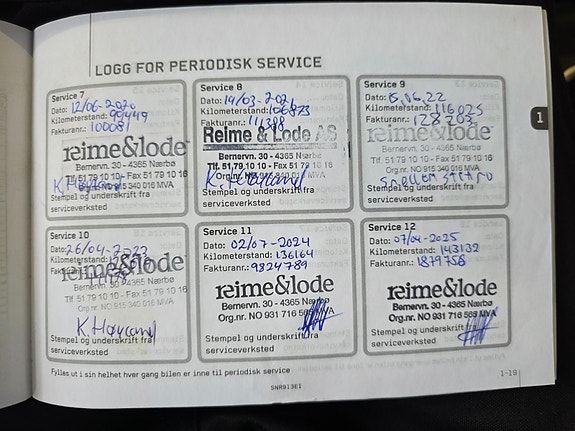 LOGG FOR PERIODISK SERVICE
Service 7
Dato: 12/06-2020
Kilometerstand: 99449
Fakturanr.: 100081
reime&lode
Bernervn. 30 - 4365 Nærbø
Tlf. 51 79 10 10 - Fax 51 79 10 16
Org.nr. NO 915 340 016 MVA
Stempel og underskrift fra
serviceverksted
Service 8
Dato: 19/03-2021
Kilometerstand: 106873
Fakturanr.: 111388
Reime & Lode AS
Bernervn. 30 - 4365 Nærbø
Tlf. 51 79 10 10 - Fax 51 79 10 16
Org.nr. NO 915 340 016 MVA
K. Høyland
Stempel og underskrift fra
serviceverksted
Service 9
Dato: 15.06.22
Kilometerstand: 116025
Fakturanr.: 128703
reime&lode
Bernervn. 30 - 4365 Nærbø
Tlf. 51 79 10 10 - Fax 51 79 10 16
Org.nr. NO 915 340 016 MVA
Stempel og underskrift fra
serviceverksted
Service 10
Dato: 26/04-2023
Kilometerstand:
Fakturanr.:
reime&lode
Bernervn. 30 - 4365 Nærbø
Tlf. 51 79 10 10 - Fax 51 79 10 16
Org.nr. NO 915 340 016 MVA
K. Høyland
Stempel og underskrift fra
serviceverksted
Service 11
Dato: 02/07-2024
Kilometerstand: 136164
Fakturanr.: 9824789
reime&lode
Bernervn. 30 - 4365 Nærbø
Org.nr. NO 931 716 565 MVA
Stempel og underskrift fra
serviceverksted
Service 12
Dato: 07/04-2025
Kilometerstand: 143132
Fakturanr.: 1879756
reime&lode
Bernervn. 30 - 4365 Nærbø
Org.nr. NO 931 716 565 MVA
Stempel og underskrift fra
serviceverksted
1
Fylles ut i sin helhet hver gang bilen er inne til periodisk service
1-19
SNR913E1